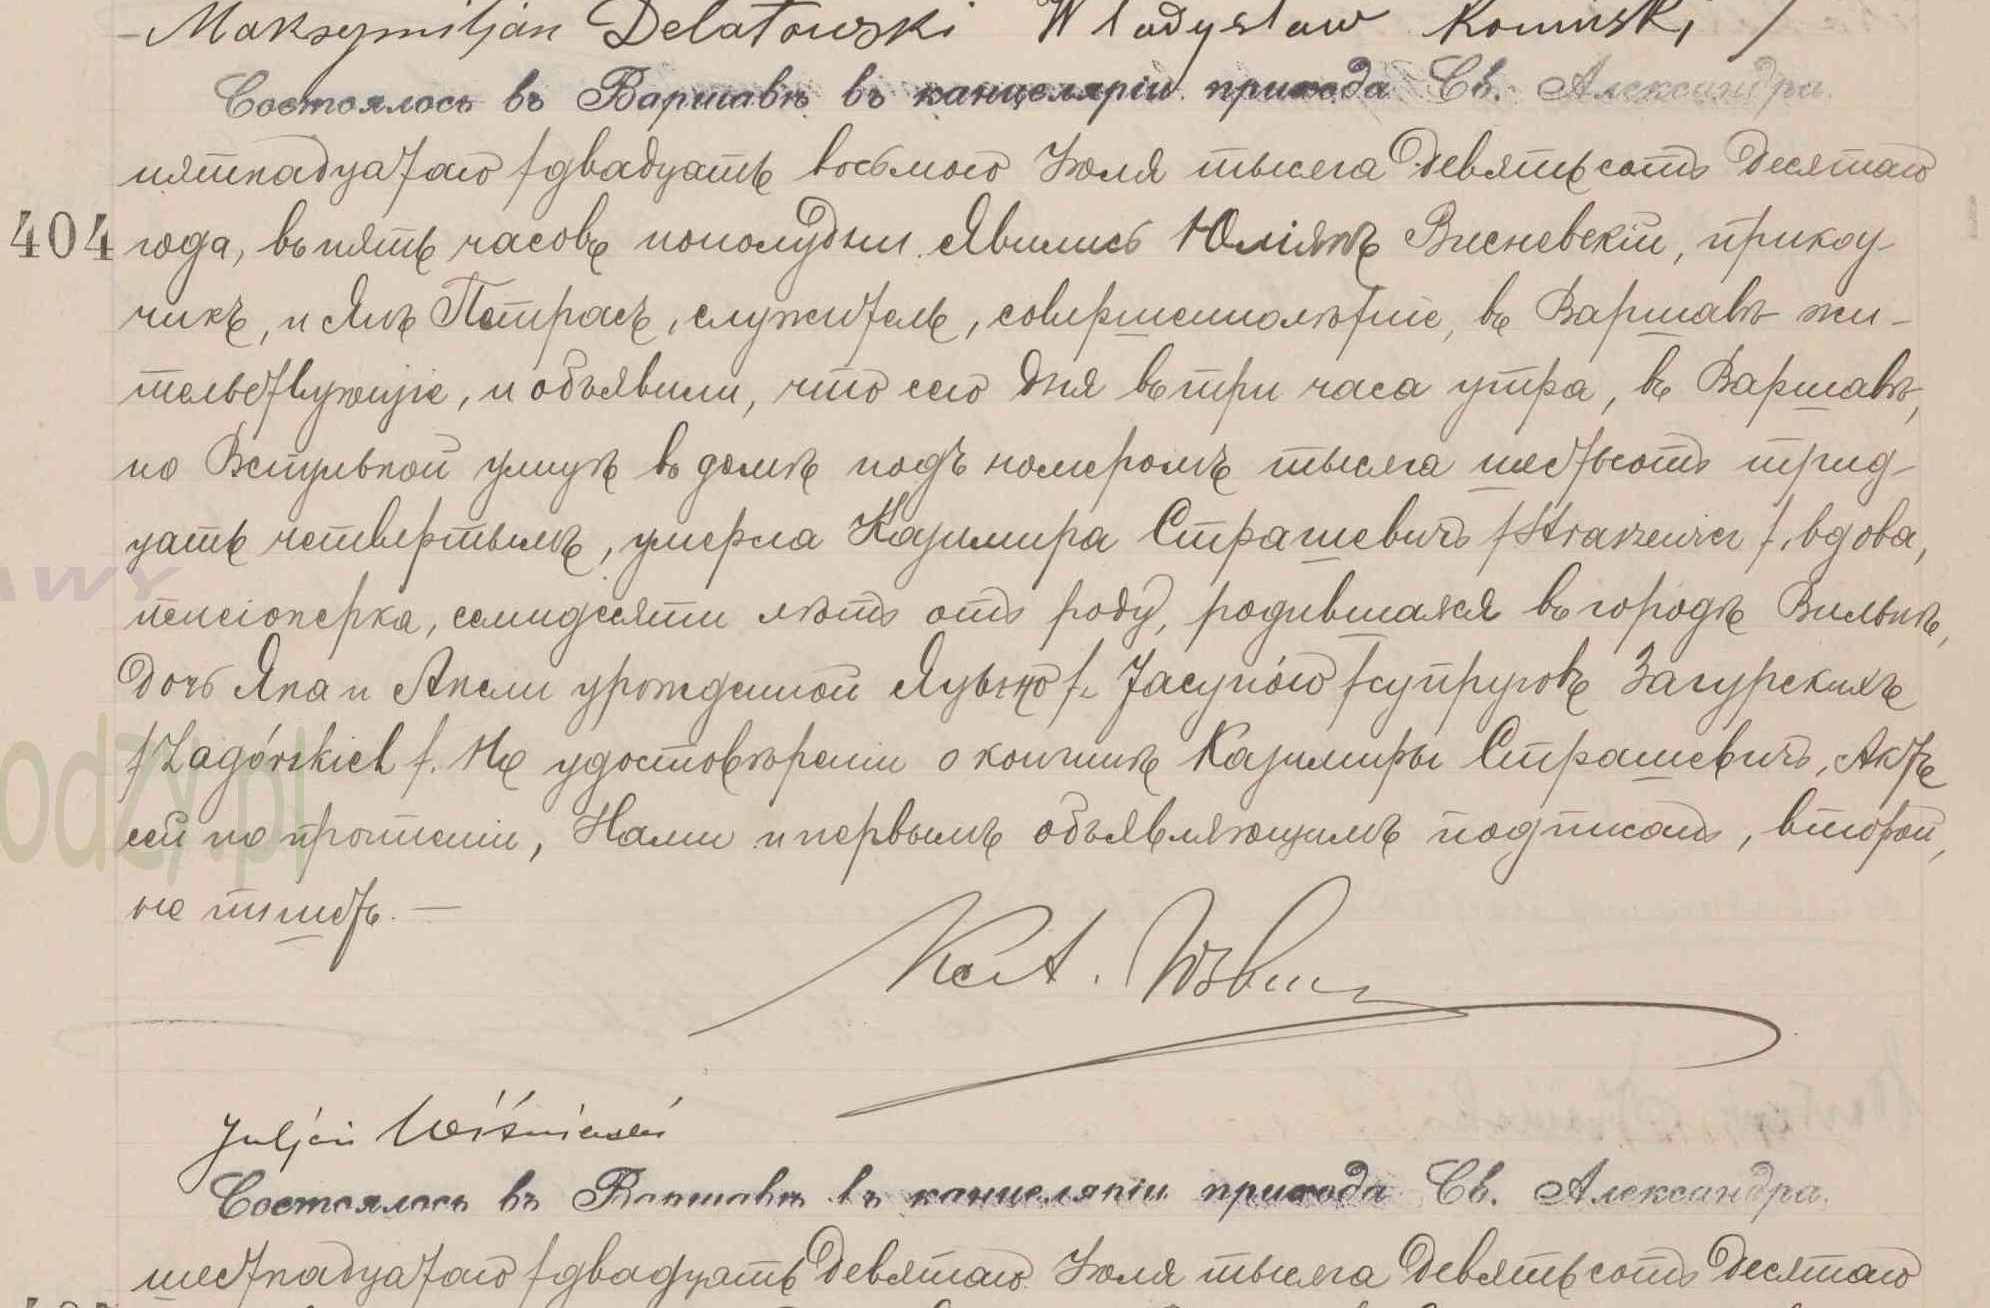 Maksymiljan Delatowski Władysław Kominski /
Состоялось въ Варшавѣ въ канцеляріи прихода Св. Александра
пятнадцатаго / двадцать восьмого Іюля тысяча девятьсотъ десятаго
404 года, въ пять часовъ пополудни. Явились Юліянъ Висневскій, прикау-
чикъ, и Янъ Петрасъ, служитель, совершеннолѣтніе, въ Варшавѣ жи-
тельствующіе, и объявили, что сего дня въ три часа утра, въ Варшавѣ,
по Вспульной улицѣ въ домѣ подъ номеромъ тысяча шестьсотъ трид-
цать четвертымъ, умерла Казимира Страшевичъ / Straszewicz /, вдова,
пенсіонерка, семидесяти лѣтъ отъ роду, родившаяся въ городѣ Вильнѣ,
дочь Яна и Анели урожденной / супруговъ Загурскихъ
/ Zagórskich /. По удостовѣреніи о кончинѣ Казимиры Страшевичъ, Актъ
сей по прочтеніи, Нами и первымъ объявляющимъ подписанъ, второй,
не пишетъ. —
Juljan Wiśniewski
Состоялось въ Варшавѣ въ канцеляріи прихода Св. Александра
шестнадцатаго / двадцать девятаго Іюля тысяча девятьсотъ десятаго